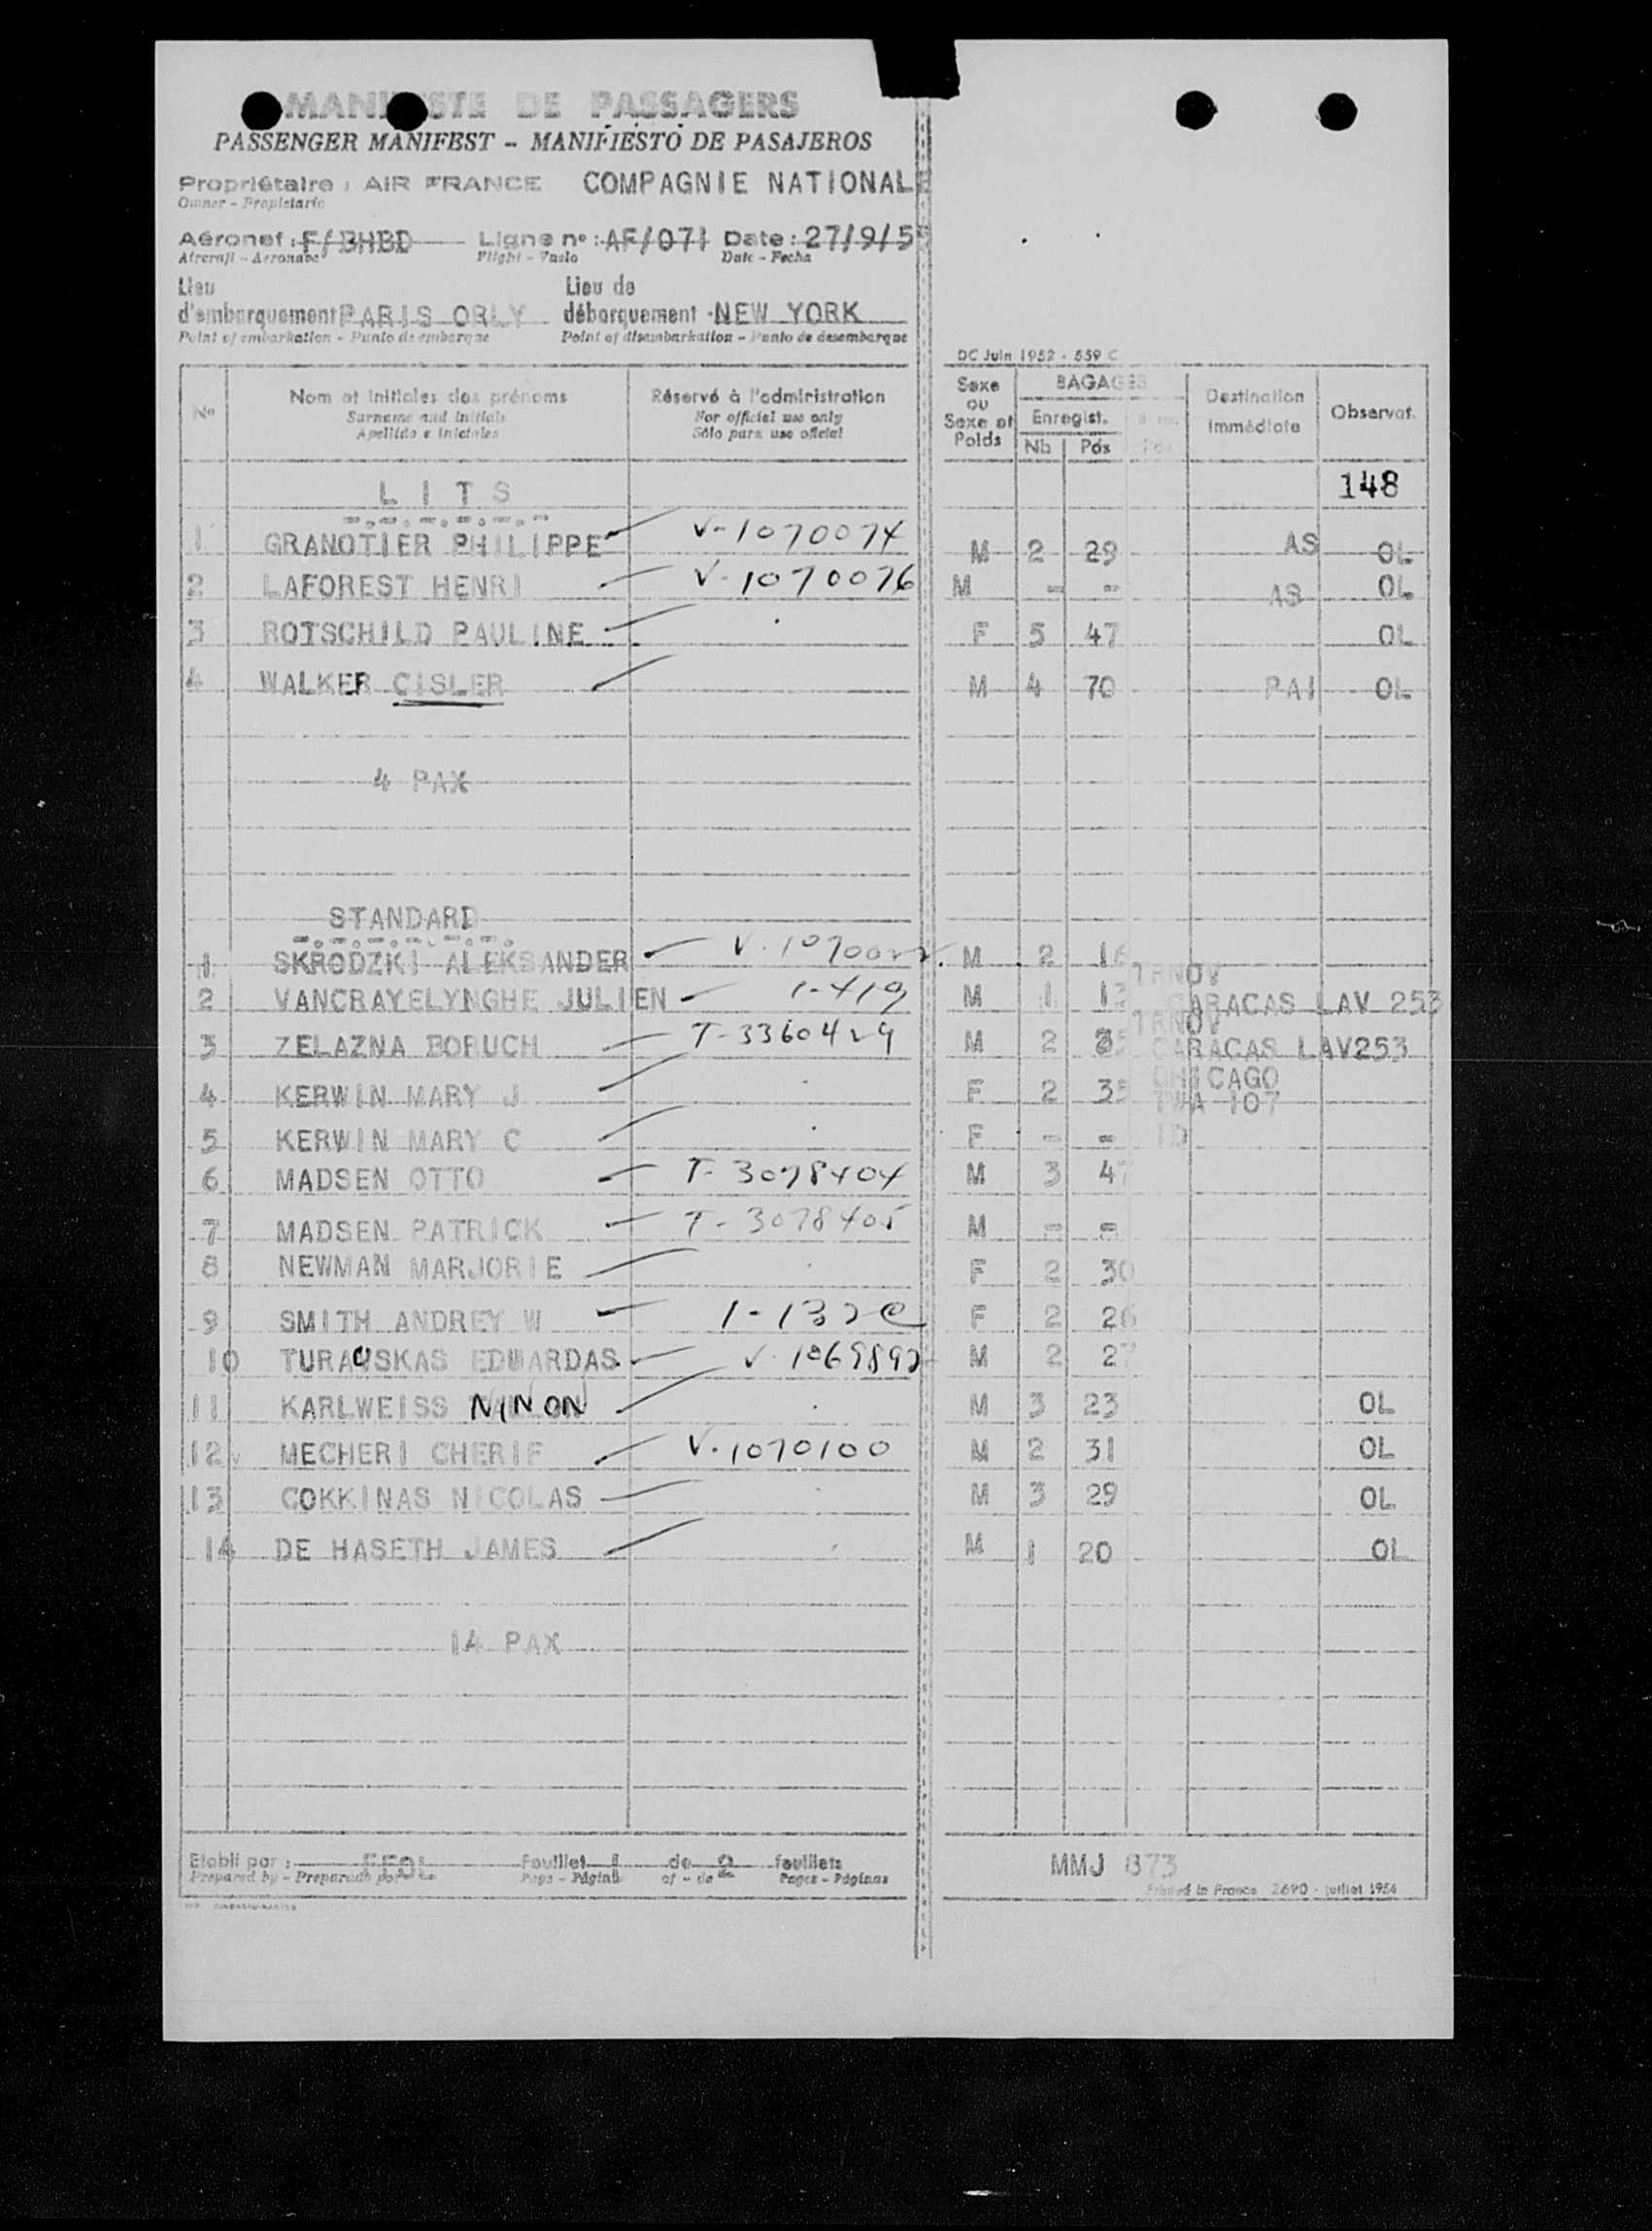 MANIFESTE DE PASSAGERS
PASSENGER MANIFEST - MANIFIESTO DE PASAJEROS
Propriétaire : AIR FRANCE COMPAGNIE NATIONALE
Owner - Propietario
Aéronef : F/BHBD Ligne n° : AF/071 Date : 27/9/5
Aircraft - Aeronave Flight - Vuelo Date - Fecha
Lieu d'embarquement PARIS ORLY Lieu de débarquement NEW YORK
Point of embarkation - Punto de embarque Point of disembarkation - Punto de desembarque
DC Juin 1952 - 559 C
N° Nom et initiales des prénoms Réservé à l'administration Sexe ou Sexe et Poids BAGAGES Destination immédiate Observat.
Surname and initials For official use only Enregist.
Apellido e iniciales Sólo para uso oficial Nb Pds
LITS 148
1 GRANOTIER PHILIPPE V-1070074 M 2 29 AS OL
2 LAFOREST HENRI V-1070076 M - - AS OL
3 ROTSCHILD PAULINE F 5 47 OL
4 WALKER CISLER M 4 70 PAI OL
4 PAX
STANDARD
1 SKRODZKI ALEKSANDER M 2
TRNOV
2 VANCRAYELYNGHE JULIEN 1-419 M 1 CARACAS LAV 253
TRNOV
3 ZELAZNA BORUCH T-3360429 M 2 CARACAS LAV253
CHICAGO
4 KERWIN MARY J F 2 TWA 107
5 KERWIN MARY C F - - ID
6 MADSEN OTTO T-3078404 M 3 47
7 MADSEN PATRICK T-3078405 M - -
8 NEWMAN MARJORIE F 2 30
9 SMITH ANDREY W F 2 26
10 TURAUSKAS EDWARDAS V-1069892 M 2 27
11 KARLWEISS NINON M 3 23 OL
12 MECHERI CHERIF V-1070100 M 2 31 OL
13 COKKINAS NICOLAS M 3 29 OL
14 DE HASETH JAMES M 1 20 OL
14 PAX
Etabli par : Feuillet 1 de 2 feuillets MMJ 873
Prepared by - Preparado por Page - Página of - de Pages - Páginas Printed in France 2690 - juillet 1954